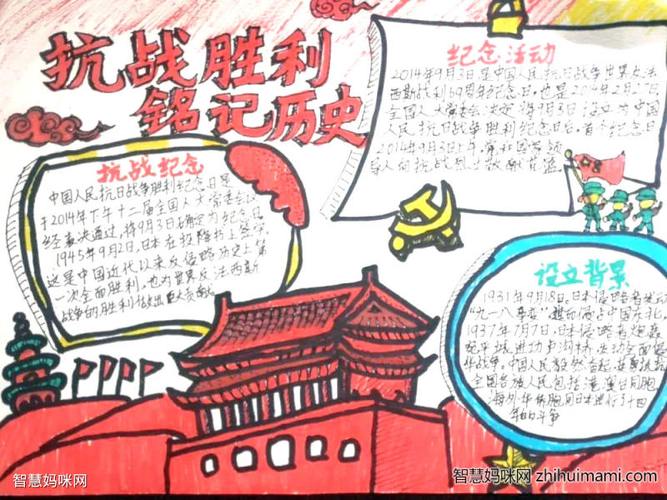 抗战胜利
铭记历史
纪念活动
2014年9月3日是中国人民抗日战争暨世界反法
西斯战利69周年纪念日。也是2014年2月27日
全国人大常委会决定将9月3日设立为中国
人民抗日战争胜利纪念日后,首个纪念日
2014年9月3日上午,党和国家领
导人向抗战烈士敬献花篮
抗战纪念
中国人民抗日战争胜利纪念日是
于2014年下午十二届全国人大常委会
经表决通过,将9月3日确定为纪念日
1945年9月2日,日本在投降书上签字
这是中国近代以来反侵略历史上第
一次全面胜利,也为世界反法西斯
战争的胜利做出巨大贡献
设立背景
1931年9月18日,日本侵略者发动
"九一八事变",侵占中国东北。
1937年7月7日,日本侵略者炮轰
宛平城进攻卢沟桥,发动全面侵
华战争。中国人民毅然奋起,
全国各族人民包括港澳台同胞
海外华侨同胞同日本进行了十四
年的斗争
智慧妈咪网
智慧妈咪网 zhihuimami.com